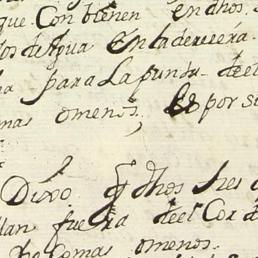 que Con bienen en dhos.
los de Agua En la derecera
para La punta del
mas omenos, Es por si
Dixo q dhos tres
llan fuera de el Cor
ho Comas omenos.